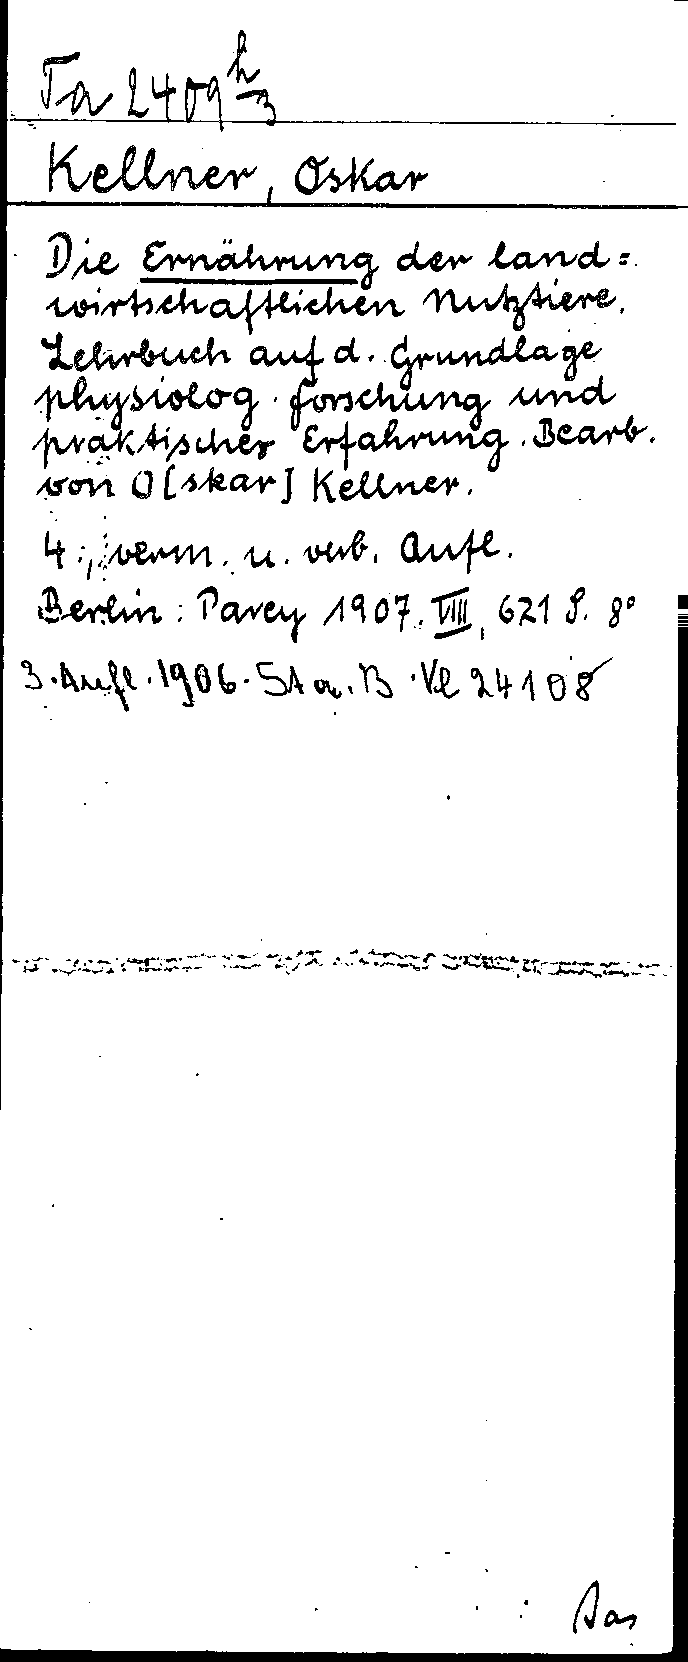 Ta 2409 h/3
Kellner, Oskar
Die Ernährung der land=
wirtschaftlichen Nutztiere.
Lehrbuch auf d. Grundlage
physiolog. Forschung und
praktischer Erfahrung. Bearb.
von O[skar] Kellner.
4., verm. u. verb. Aufl.
Berlin: Parey 1907. VIII, 621 S. 8°
3. Aufl. 1906. St a. B. Vl 24108